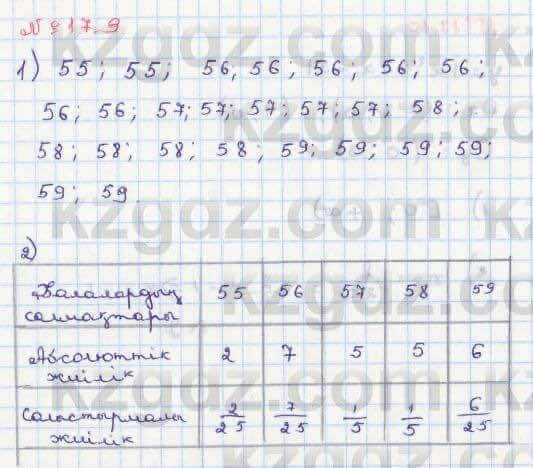 № 17.9
1) 55; 55; 56, 56; 56; 56; 56;
56; 56; 57; 57; 57; 57; 57; 58;
58; 58; 58; 58; 59; 59; 59; 59;
59; 59.
2)
Балалардың салмақтары 55 56 57 58 59
Абсолюттік жиілік 2 7 5 5 6
Салыстырмалы жиілік 2/25 7/25 1/5 1/5 6/25
kzgdz.com